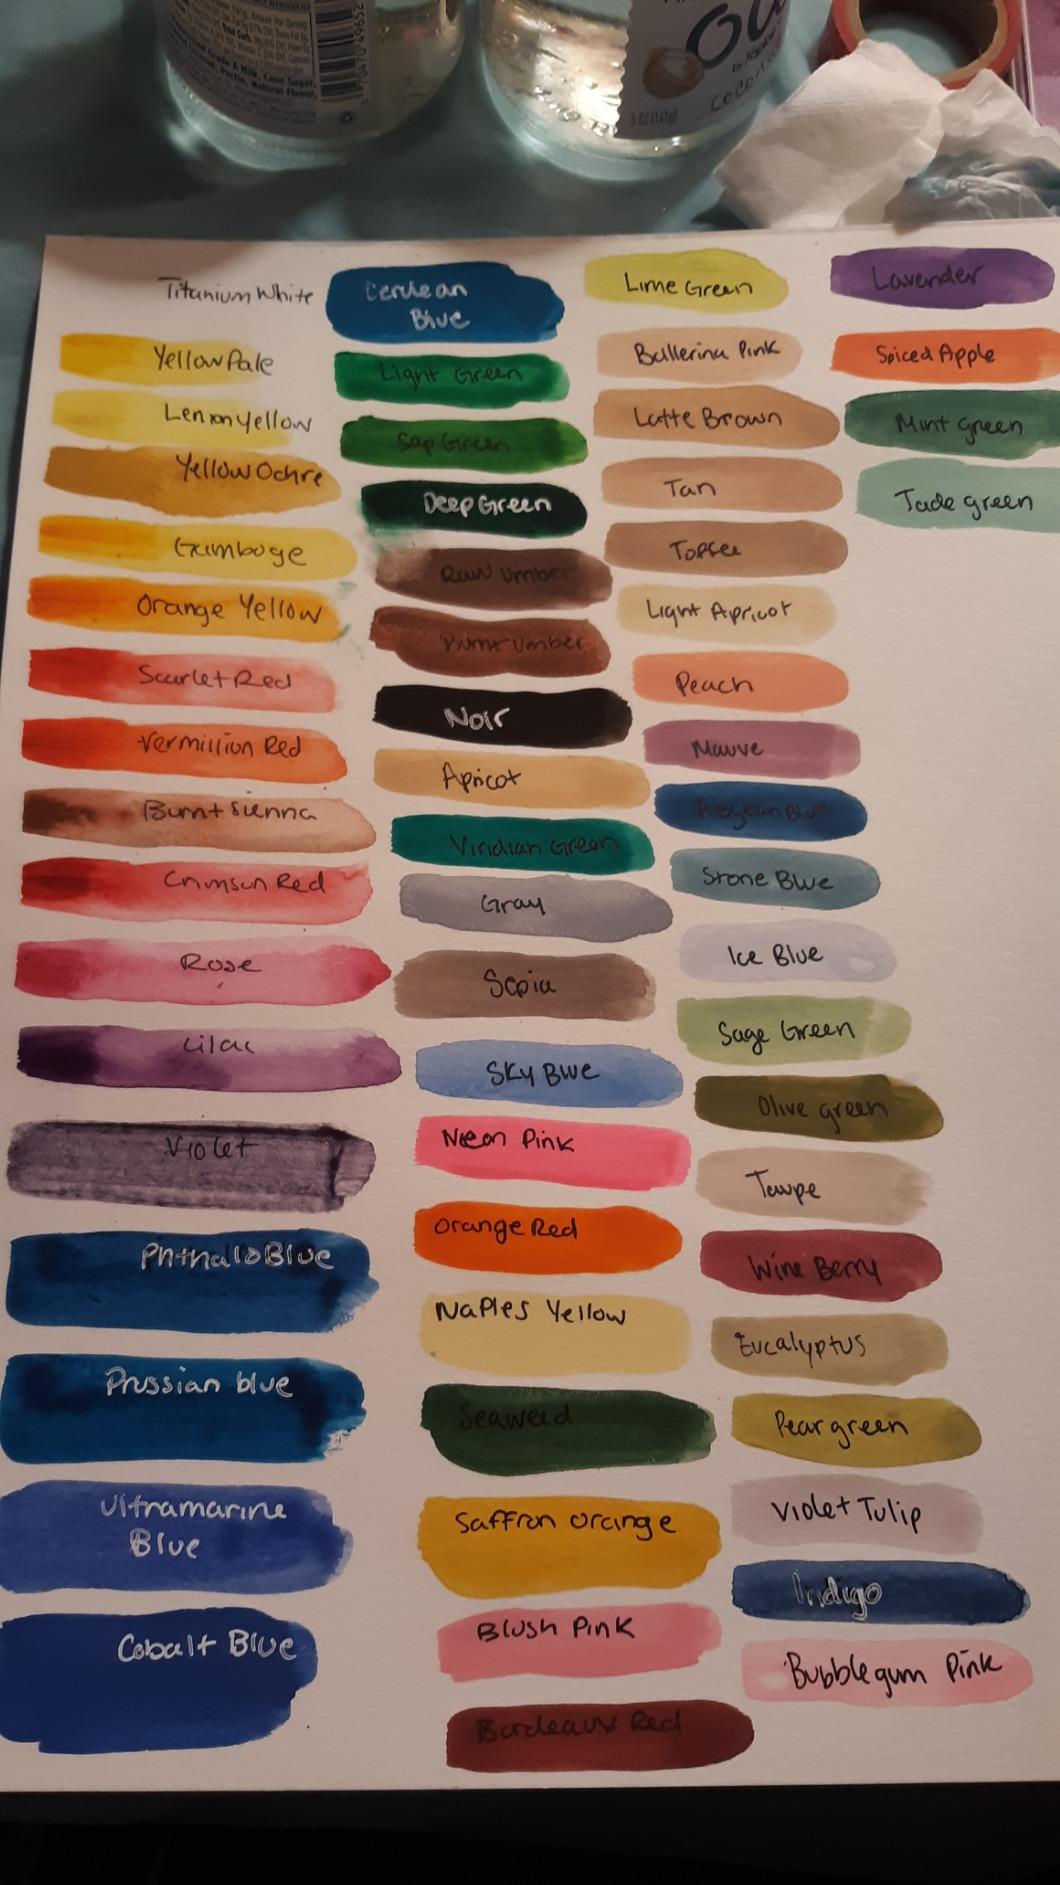 70470 49652
Oui
5 OZ (141g)
Titanium White
Yellow Pale
Lemon Yellow
Yellow Ochre
Gamboge
Orange Yellow
Scarlet Red
Vermillion Red
Burnt Sienna
Crimson Red
Rose
Lilac
Violet
Phthalo Blue
Prussian blue
Ultramarine
Blue
Cobalt Blue
Cerulean
Blue
Light Green
Sap Green
Deep Green
Raw Umber
Burnt Umber
Noir
Apricot
Viridian Green
Gray
Sepia
Sky Blue
Neon Pink
Orange Red
Naples Yellow
Seaweed
Saffron orange
Blush Pink
Bordeaux Red
Lime Green
Ballerina Pink
Latte Brown
Tan
Toffee
Light Apricot
Peach
Mauve
Aegean Blue
Stone Blue
Ice Blue
Sage Green
Olive green
Taupe
Wine Berry
Eucalyptus
Pear green
Violet Tulip
Indigo
Bubblegum Pink
Lavender
Spiced Apple
Mint green
Jade green